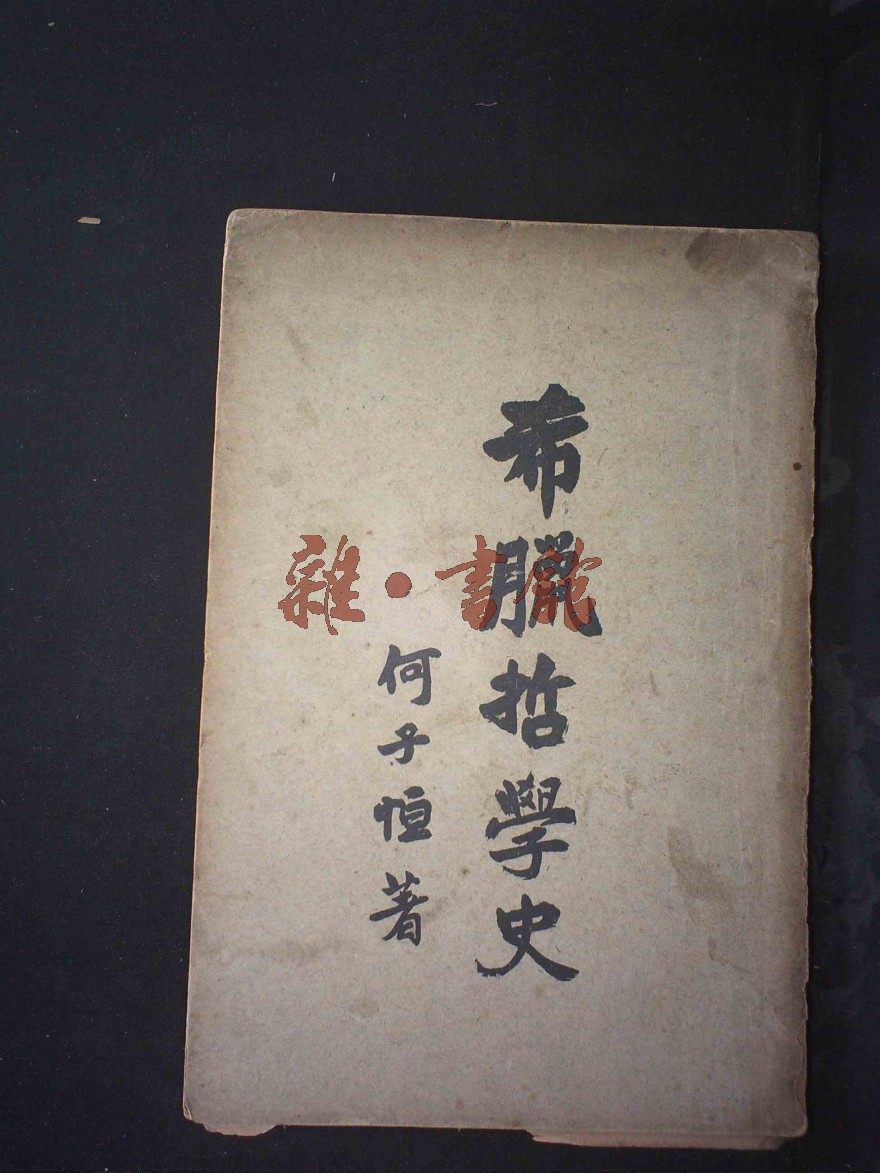 希臘哲學史
何子恒著
雜·書館